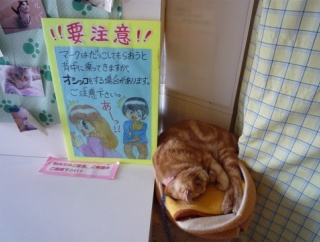 !!要注意!!
マークはだっこしてもらおうと
背中に乗ってきますが、
オシッコをする場合があります。
ご注意下さい。
あ〜っ!!